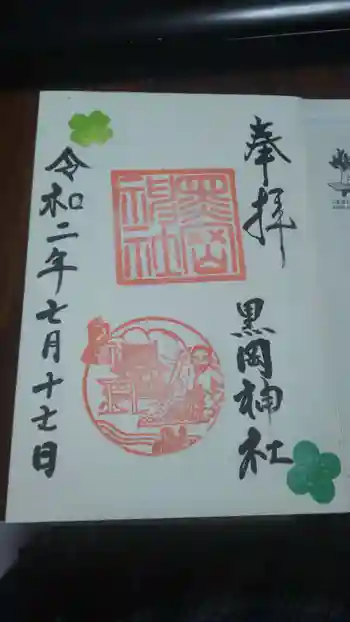 奉拝
黒岡神社
黒岡
神社
令和二年七月十七日